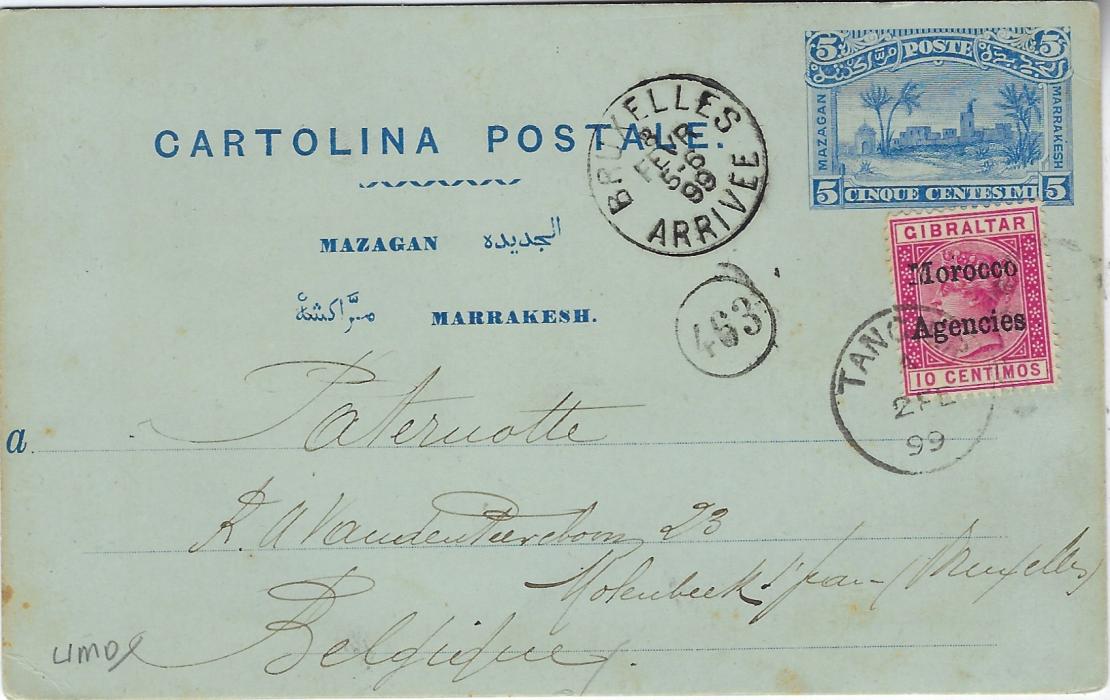 5 POSTE 5
MAZAGAN
MARRAKESH
5 CINQUE CENTESIMI 5
CARTOLINA POSTALE.
BRUXELLES
8
FEVR
5-6
99
ARRIVÉE
MAZAGAN الجديده
مرّاكشة MARRAKESH.
GIBRALTAR
Morocco
Agencies
10 CENTIMOS
463
TANG
2 FE
99
a Paternotte
R. A Vandenpeereboom 23
Molenbeek St Jean - (Bruxelles)
Belgique.